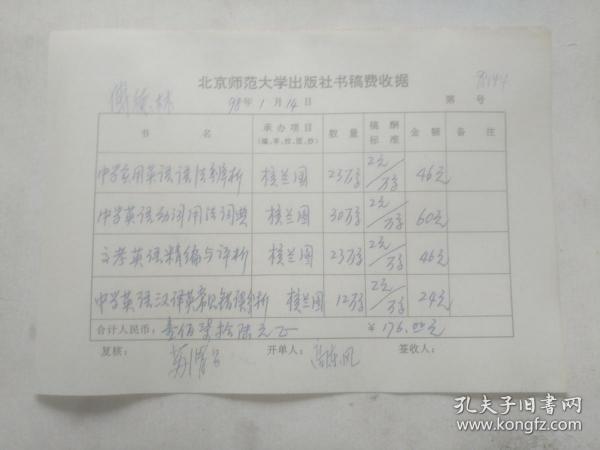 北京师范大学出版社书稿费收据
98年1月14日 第 号
书 名 承办项目 数量 稿酬 金额 备注
标准
中学实用英语语法辨析 核兰图 23万字 2元/万字 46元
中学英语动词用法词典 核兰图 30万字 2元/万字 60元
高考英语精编与评析 核兰图 23万字 2元/万字 46元
中学英语汉译英常见错误分析 核兰图 12万字 2元/万字 24元
合计人民币：壹佰柒拾陆元正 ¥176.00元
复核： 开单人： 签收人：
孔夫子旧书网
www.kongfz.com